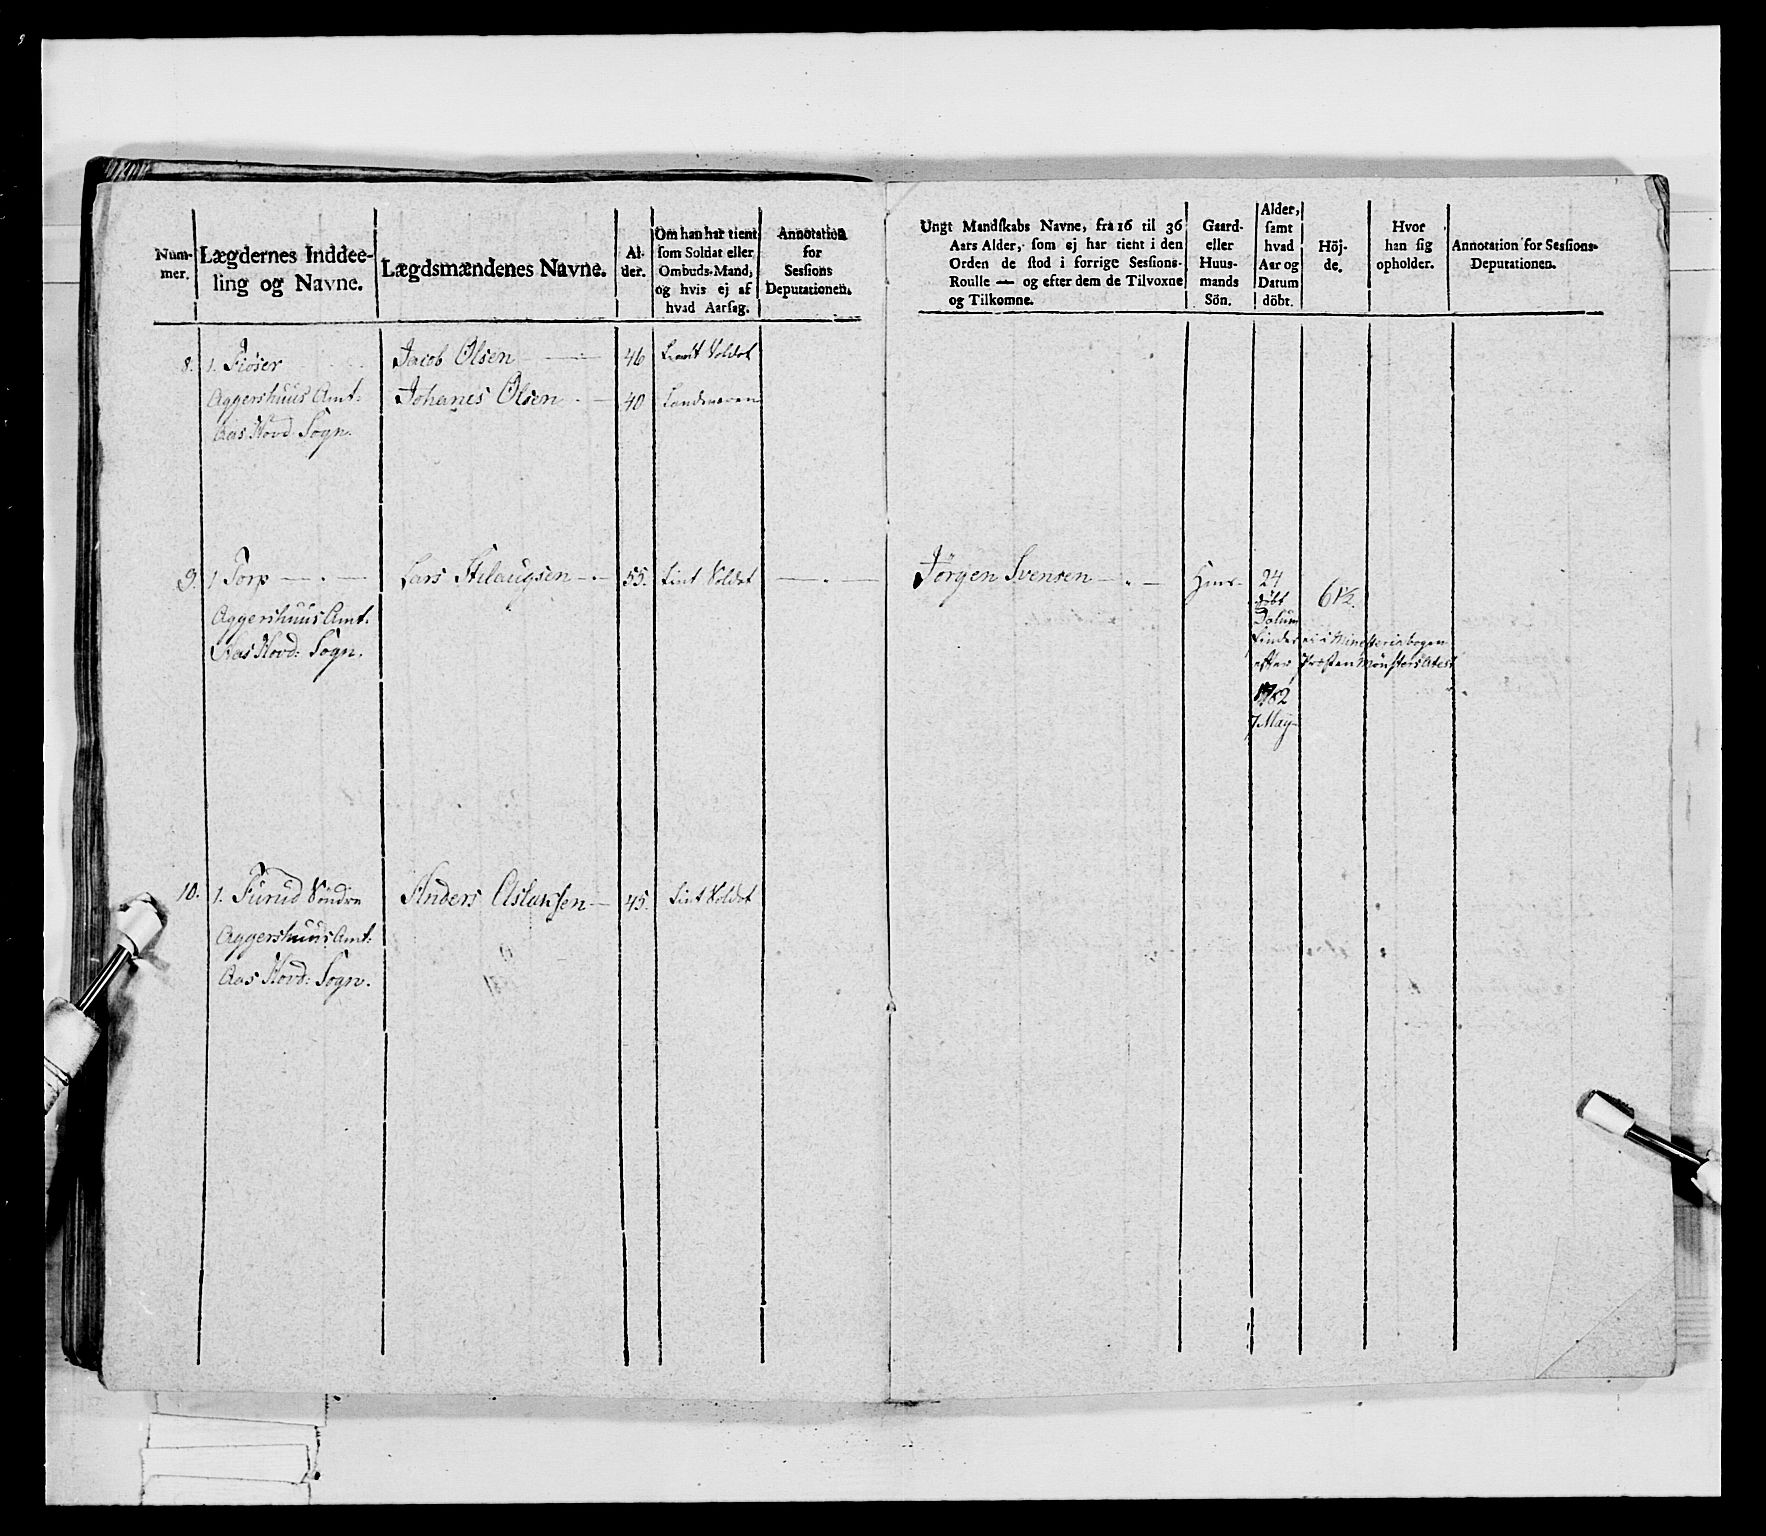 Num-
mer.
Lægdernes Inddee-
ling og Navne.
Lægdsmændenes Navne.
Al-
der.
Om han har tient
som Soldat eller
Ombuds-Mand,
og hvis ej af
hvad Aarsag.
Annotation
for
Sessions
Deputationen.
Ungt Mandskabs Navne, fra 16 til 36
Aars Alder, som ej har tient i den
Orden de stod i forrige Sessions-
Roulle — og efter dem de Tilvoxne
og Tilkomne.
Gaard-
eller
Huus-
mands
Sön.
Alder,
samt
hvad
Aar og
Datum
döbt.
Höj-
de.
Hvor
han sig
opholder.
Annotation for Sessions-
Deputationen.
8. 1. Fiöser Jacob Olsen 46 Soldat
Aggershuus Amt: Johanes Olsen 40 Landeværen
Aas Hovd: Sogn.
9. 1 Torp Lars 55. Tient Soldat Jörgen Svensen Huus 24 6 1/2.
Aggershuus Amt. döbt
Datum
Aas Hovd: Sogn. findes ei i Ministeriabogen
efter Præsten Mönsters Atest
1782
7 May
10. 1. Furud Söndre Anders Aslaksen 45. Tient Soldat
Aggershuus Amt:
Aas Hovd: Sogn.